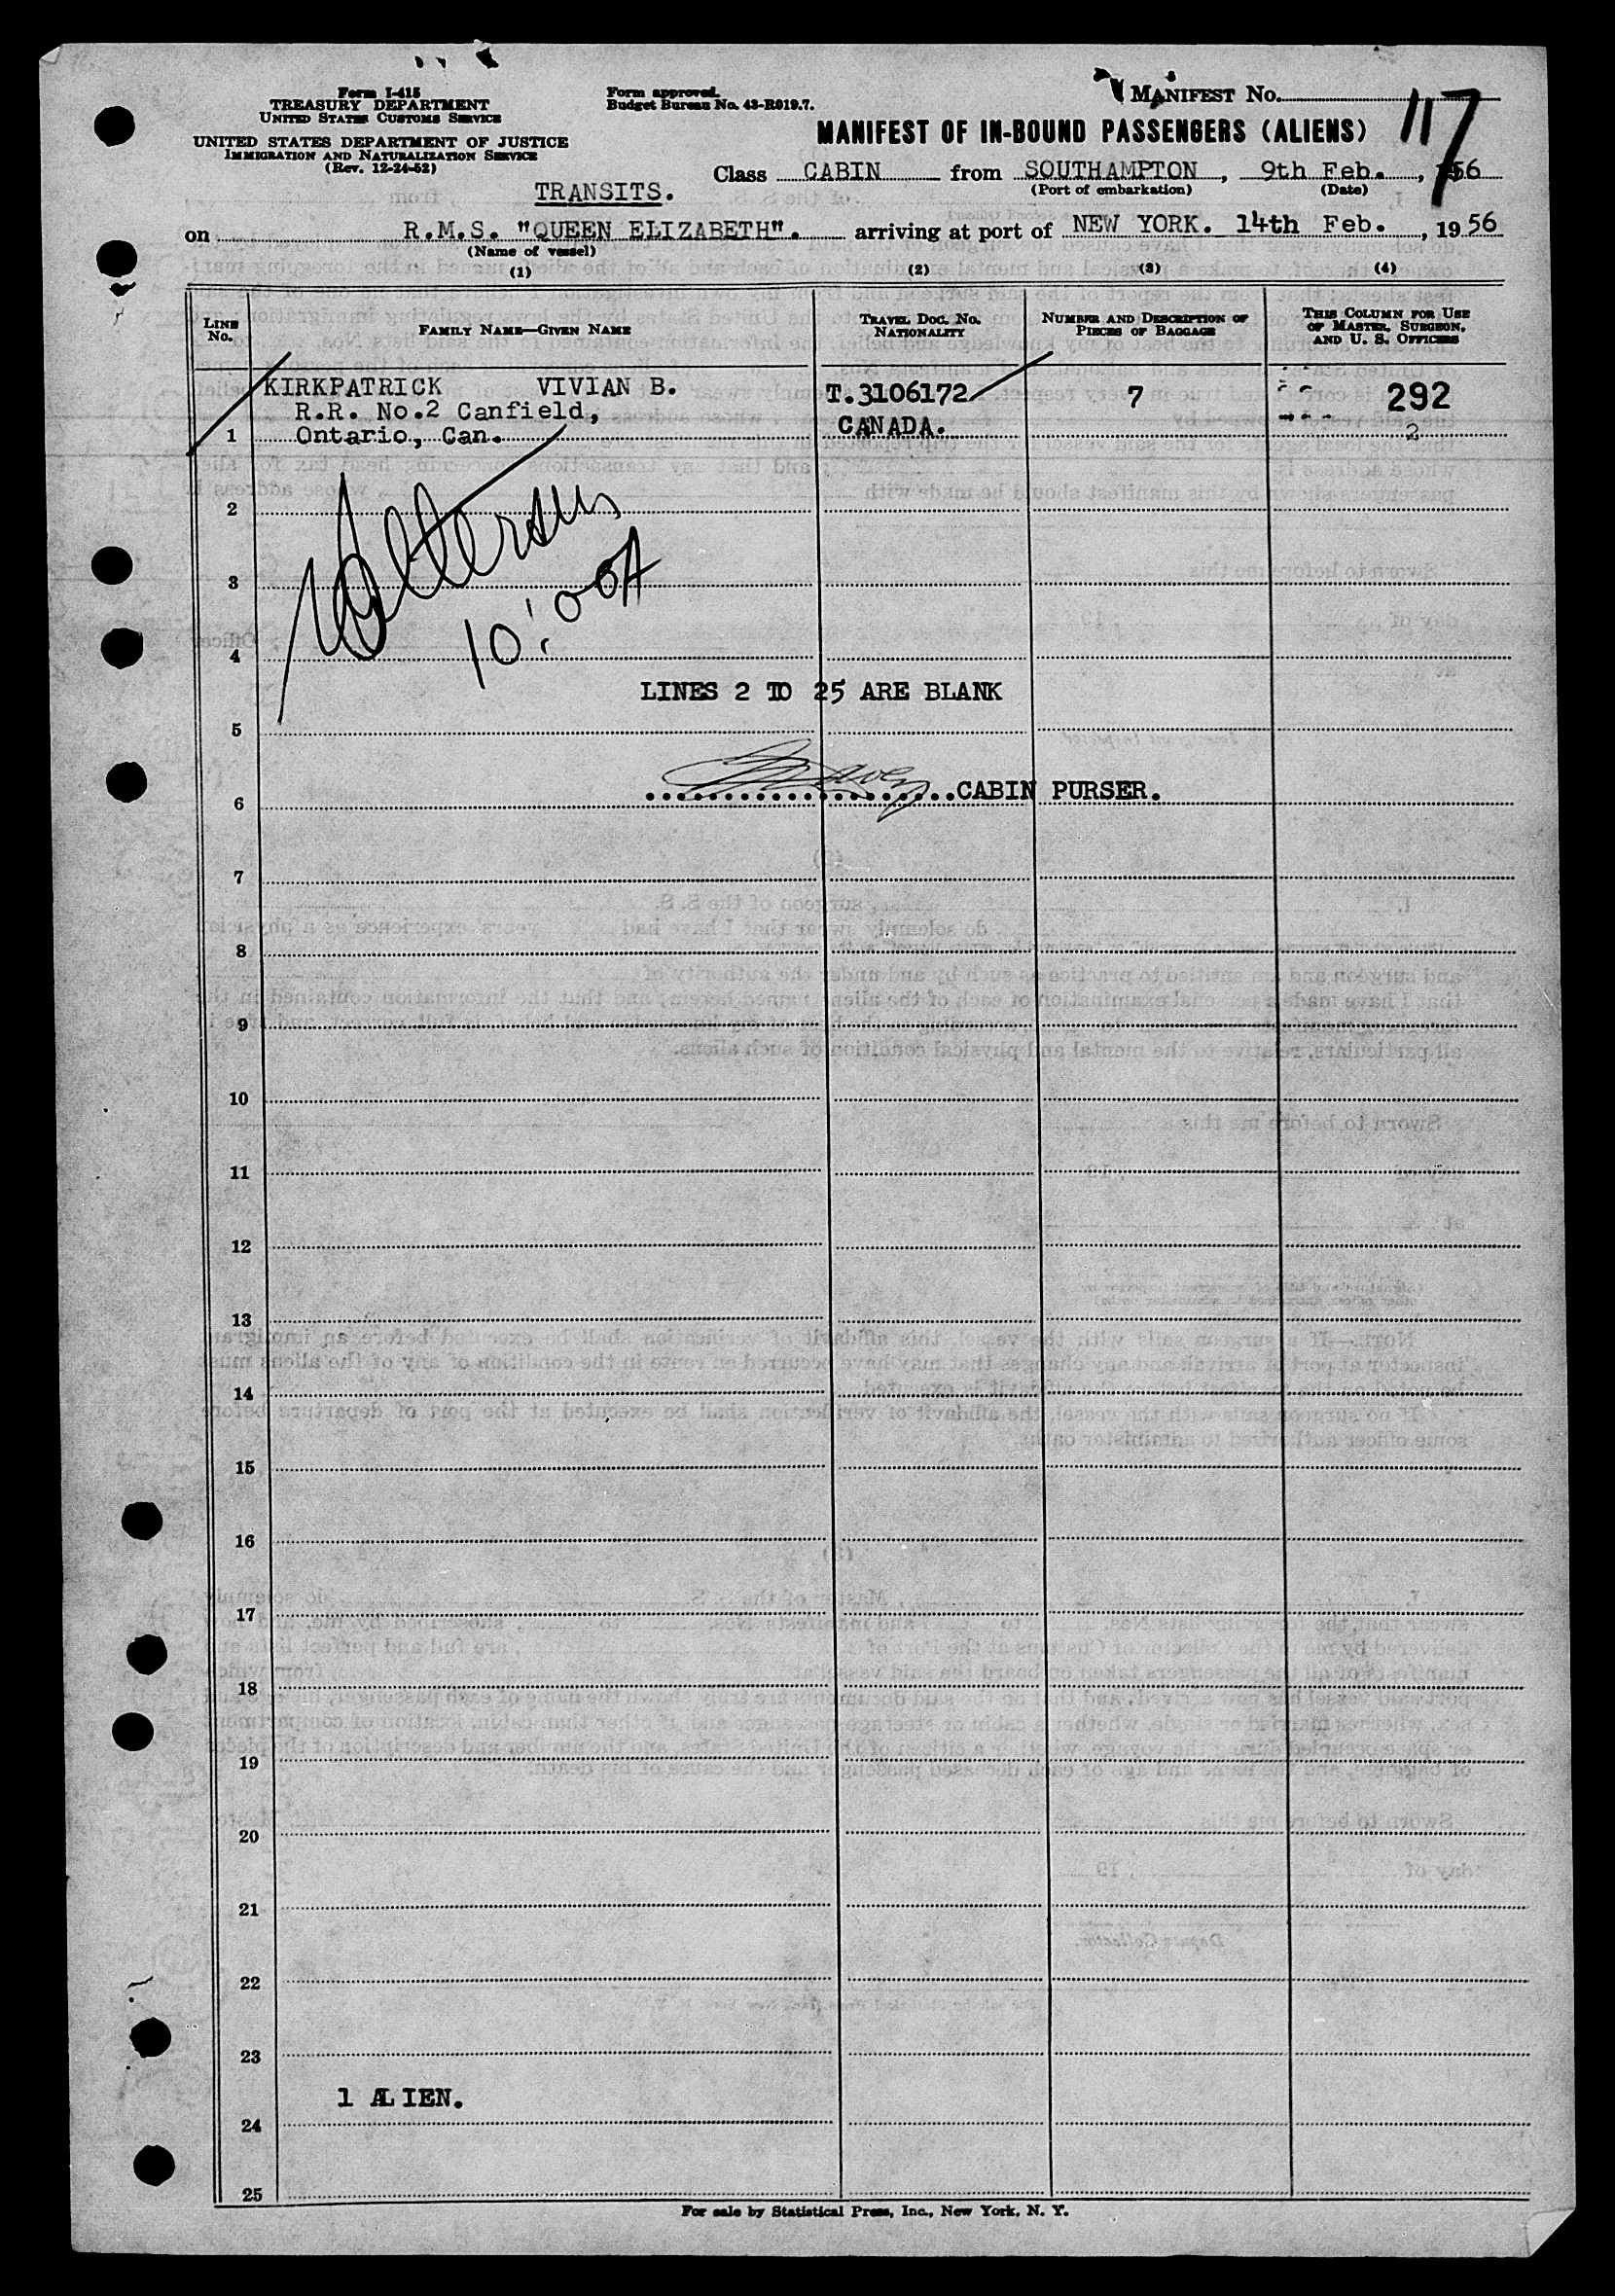 Form I-415
TREASURY DEPARTMENT
UNITED STATES CUSTOMS SERVICE
UNITED STATES DEPARTMENT OF JUSTICE
IMMIGRATION AND NATURALIZATION SERVICE
(Rev. 12-24-52)
Form approved.
Budget Bureau No. 43-R019.7.
MANIFEST No. 117
MANIFEST OF IN-BOUND PASSENGERS (ALIENS)
Class CABIN from SOUTHAMPTON, 9th Feb., 1956
(Port of embarkation) (Date)
TRANSITS.
on R.M.S. "QUEEN ELIZABETH". arriving at port of NEW YORK. 14th Feb., 1956
(Name of vessel)
(1) (2) (3) (4)
LINE No. FAMILY NAME—GIVEN NAME TRAVEL DOC. NO. NATIONALITY NUMBER AND DESCRIPTION OF PIECES OF BAGGAGE THIS COLUMN FOR USE OF MASTER, SURGEON, AND U. S. OFFICERS
KIRKPATRICK VIVIAN B. T.3106172 7 292
R.R. No.2 Canfield,
1 Ontario, Can. CANADA. 2
2
3
10:00A
4
LINES 2 TO 25 ARE BLANK
5
6 CABIN PURSER.
7
8
9
10
11
12
13
14
15
16
17
18
19
20
21
22
23
1 ALIEN.
24
25
For sale by Statistical Press, Inc., New York, N. Y.